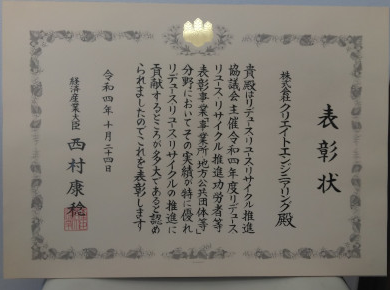 表彰状
株式会社クリエイトエンジニアリング殿
貴殿はリデュース・リユース・リサイクル推進
協議会主催令和四年度リデュース・
リユース・リサイクル推進功労者等
表彰事業「事業所・地方公共団体等」
分野においてその実績が特に優れ
リデュース・リユース・リサイクルの推進に
貢献するところが多大であると認め
られましたのでこれを表彰します
令和四年十月二十四日
経済産業大臣 西村康稔